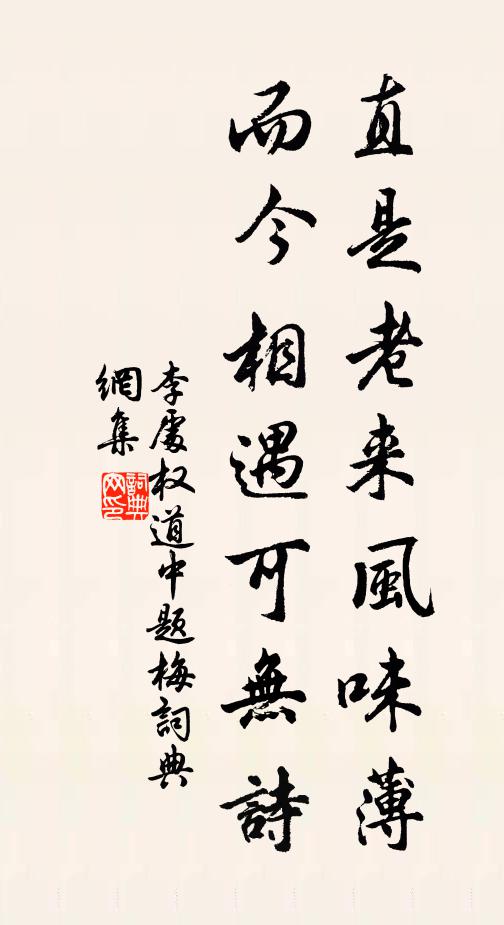 直是老来風味薄
而今相遇可無詩
李處权道中題梅詞典
網集
詞典
网印